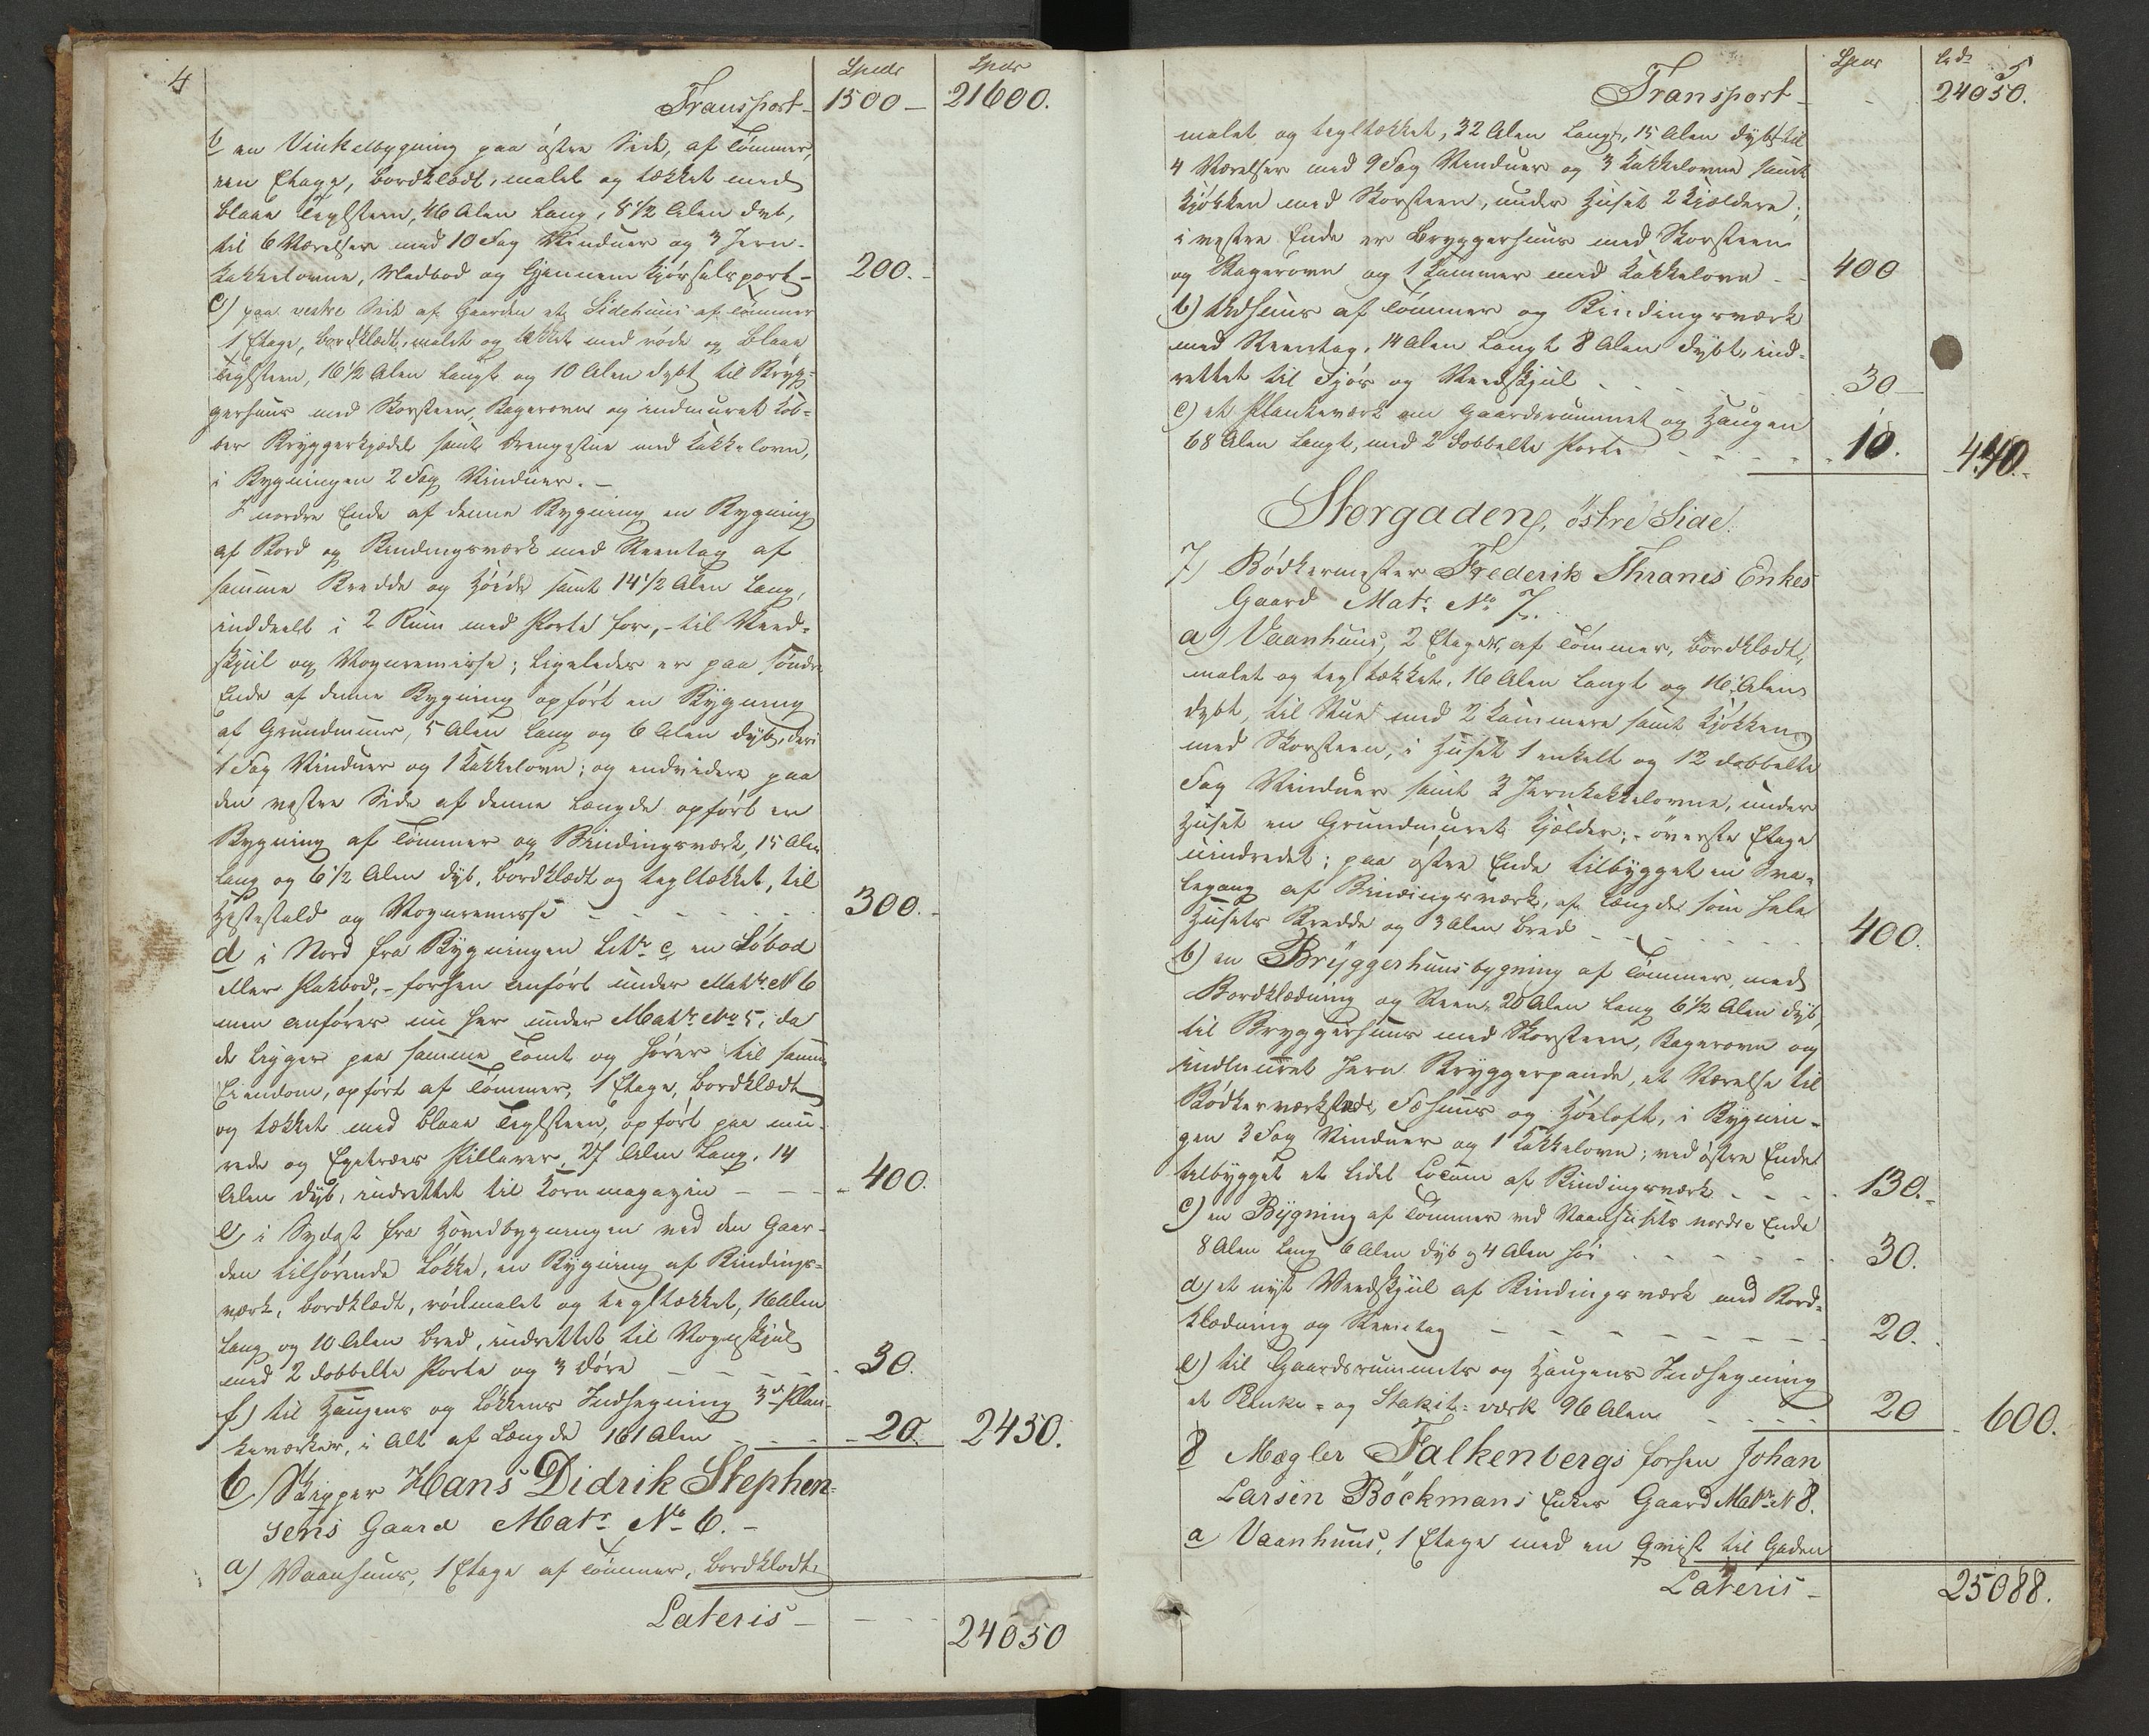 4
Spdr Spdr
Transport - 1500 - 21600.
b en Vinkelbygning paa østre Side, af Tømmer,
een Etage, bordklædt, malet og tækket med
blaae Teglsteen, 46 Alen lang, 8 1/2 Alen dyb,
til 6 Værelser med 10 Fag Vinduer og 3 Jern-
kakkelovne, Madbod og Gjennemkjørselsport - 200. -
c) paa vestre Side af Gaarden et Sidehuus af Tømmer
1 Etage, bordklædt, malet og tækket med røde og blaae
Teglsteen, 16 1/2 Alen langt og 10 Alen dybt til Bryg-
gerhuus med Skorsteen, Bagerovn og indmuret Kob-
ber Bryggerkjedel samt Drengestue med Kakkelovn,
i Bygningen 2 Fag Vinduer. -
I nordre Ende af denne Bygning en Bygning
af Bord og Bindingsværk med Steentag af
samme Bredde og Høide samt 14 1/2 Alen lang,
inddeelt i 2 Rum med Porte for, - til Veed-
skjul og Vognremisse; ligeledes er paa søndre
Ende af denne Bygning opført en Bygning
af Grundmuur, 5 Alen lang og 6 Alen dyb, deri
1 Fag Vinduer og 1 Kakkelovn; og endvidere paa
den vestre Side af denne Længde opført en
Bygning af Tømmer og Bindingsværk, 15 Alen
lang og 6 1/2 Alen dyb, bordklædt og tegltækket, til
Hestestald og Vognremisse - - - - - - 300. -
d i Nord fra Bygningen Litr. c, en Søbod
eller Pakbod, - forhen anført under Matr. N 6
men anføres nu her under Matr. No 5, da
de ligger paa samme Tomt og hører til samme
Eiendom, opført af Tømmer, 1 Etage, bordklædt
og tækket med blaae Teglsteen, opført paa mu-
rede og Egetræes Pillarer, 27 Alen lang, 14
Alen dyb, indrettet til Kornmagazin - - - 400.
e, i Sydost fra Hovedbygningen ved den Gaar-
den tilhørende Løkke, en Bygning af Bindings-
værk, bordklædt, rødmalet og tegltækket, 16 Alen
lang og 10 Alen bred, indrettet til Vognskjul
med 2 dobbelte Porte og 3 Døre - - - - 30.
f) til Haugens og Løkkens Indhegning 3de Plan-
keværker, i Alt af Længde 161 Alen - - - - 20. 2450.
6, Skipper Hans Didrik Stephen-
sens Gaard Matr. No 6. -
a) Vaanhuus, 1 Etage af Tømmer, bordklædt,
Lateris - - - - 24050
5
Spdr Spdr
Transport - - 24050.
malet og tegltækket, 32 Alen langt, 15 Alen dybt til
4 Værelser med 9 Fag Vinduer og 3 Kakkelovne samt
Kjøkken med Skorsteen, under Huset 2 Kjældere;
i vestre Ende er Bryggerhuus med Skorsteen
og Bagerovn og 1 Kammer med Kakkelovn - - 400
b) Udhuus af Tømmer og Bindingsværk
med Steentag, 14 Alen langt 8 Alen dybt, ind-
rettet til Fjøs og Veedskjul - - - - - - 30 -
c) et Plankeværk om Gaardsrummet og Haugen
68 Alen langt, med 2 dobbelte Porte - - - - - 10. 440. -
Storgaden, østre Side.
7) Bødkermester Frederik Thranes Enkes
Gaard Matr. No 7.
a) Vaanhuus, 2 Etager, af Tømmer, bordklædt,
malet og tegltækket, 16 Alen langt og 16 Alen
dybt, til Stue med 2 Kammere samt Kjøkken
med Skorsteen, i Huset 1 enkelt og 12 dobbelte
Fag Vinduer samt 3 Jernkakkelovne, under
Huset en Grundmuret Kjælder; - øverste Etage
uindredet; paa østre Ende tilbygget en Sva-
legang af Bindingsværk, af Længde som hele
Husets Bredde og 3 Alen bred - - - - - - 400.
b) en Bryggerhuusbygning af Tømmer, med
Bordklædning og Steen, 20 Alen lang 6 1/2 Alen dyb,
til Bryggerhuus med Skorsteen, Bagerovn og
indmuret Jern Bryggerpande, et Værelse til
Bødkerværksted, Fæhuus og Høeloft, i Bygnin-
gen 3 Fag Vinduer og 1 Kakkelovn; ved østre Ende
tilbygget et lidet Locum af Bindingsværk - - - - 130. -
c) en Bygning af Tømmer ved Vaanhusets nordre Ende
8 Alen lang 6 Alen dyb og 4 Alen høi - - - - - - 30.
d) et nyt Veedskjul af Bindingsværk med Bord-
klædning og Steentag - - - - - - - - 20.
e) til Gaardsrummets og Haugens Indhegning
et Planke- og Stakit-værk 96 Alen - - - - 20 - 600.
8 Mægler Falkenbergs forhen Johan
Larsen Böckmans Enkes Gaard Matr. N 8.
a Vaanhuus, 1 Etage med en Qvist til Gaden
Lateris - 25088.